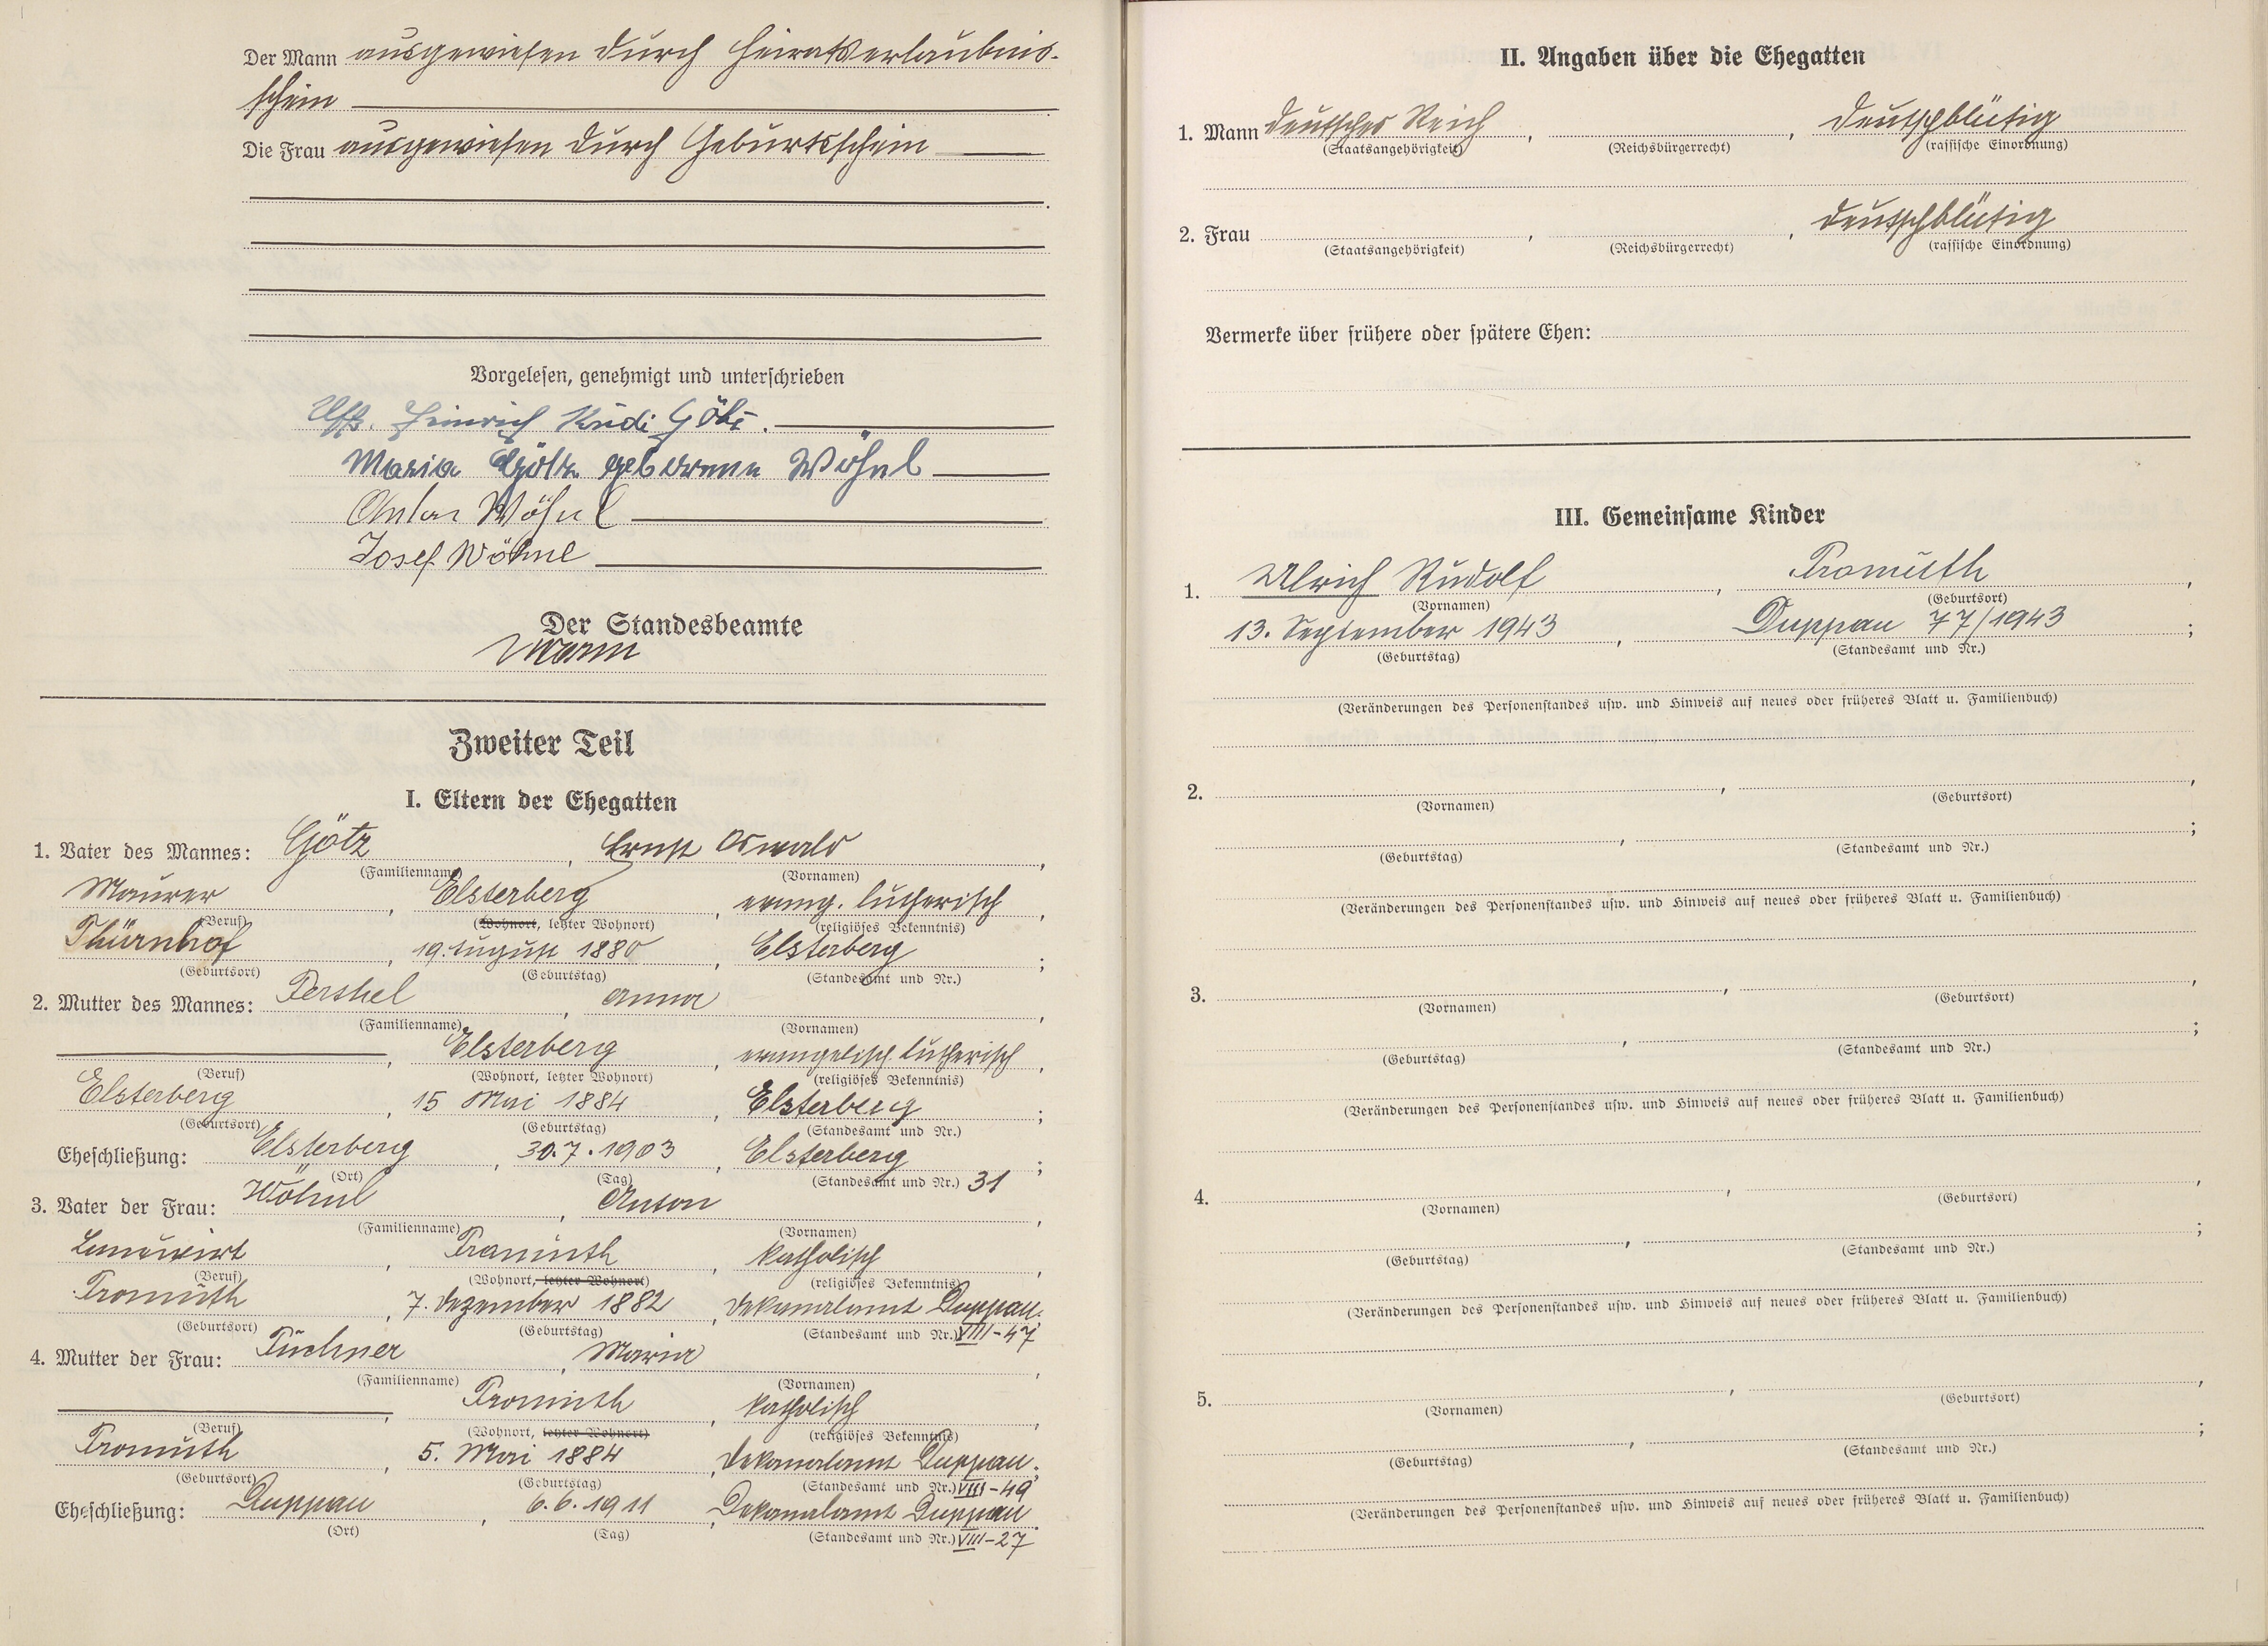 Der Mann ausgewiesen durch Heiratserlaubnis-
schein
Die Frau ausgewiesen durch Geburtsschein
Vorgelesen, genehmigt und unterschrieben
Uffz. Heinrich Rudi Götz.
Maria Götz geborene Wöhnl
Anton Wöhnl
Josef Wöhnl
Der Standesbeamte
Zweiter Teil
I. Eltern der Ehegatten
1. Vater des Mannes: Götz, Ernst Oswald,
(Familienname) (Vornamen)
Maurer, Elsterberg, evang. lutherisch,
(Beruf) (Wohnort, letzter Wohnort) (religiöses Bekenntnis)
Thürnhof, 19. August 1880, Elsterberg;
(Geburtsort) (Geburtstag) (Standesamt und Nr.)
2. Mutter des Mannes: Anna,
(Familienname) (Vornamen)
Elsterberg, evangelisch lutherisch,
(Beruf) (Wohnort, letzter Wohnort) (religiöses Bekenntnis)
Elsterberg, 15 Mai 1884, Elsterberg;
(Geburtsort) (Geburtstag) (Standesamt und Nr.)
Eheschließung: Elsterberg, 30.7.1903, Elsterberg;
(Ort) (Tag) (Standesamt und Nr.) 31
3. Vater der Frau: Wöhnl, Anton,
(Familienname) (Vornamen)
Landwirt, Promuth, katholisch,
(Beruf) (Wohnort, letzter Wohnort) (religiöses Bekenntnis)
Promuth, 7. Dezember 1882, Dekanalamt Duppau;
(Geburtsort) (Geburtstag) (Standesamt und Nr.) VIII-47
4. Mutter der Frau: Püchner, Maria,
(Familienname) (Vornamen)
Promuth, katholisch,
(Beruf) (Wohnort, letzter Wohnort) (religiöses Bekenntnis)
Promuth, 5. Mai 1884, Dekanalamt Duppau;
(Geburtsort) (Geburtstag) (Standesamt und Nr.) VIII-49
Eheschließung: Duppau, 6.6.1911, Dekanalamt Duppau.
(Ort) (Tag) (Standesamt und Nr.) VIII-27
II. Angaben über die Ehegatten
1. Mann Deutsches Reich, , deutschblütig
(Staatsangehörigkeit) (Reichsbürgerrecht) (rassische Einordnung)
2. Frau , , deutschblütig
(Staatsangehörigkeit) (Reichsbürgerrecht) (rassische Einordnung)
Vermerke über frühere oder spätere Ehen:
III. Gemeinsame Kinder
1. Ulrich Rudolf, Promuth,
(Vornamen) (Geburtsort)
13. September 1943, Duppau 77/1943;
(Geburtstag) (Standesamt und Nr.)
(Veränderungen des Personenstandes usw. und Hinweis auf neues oder früheres Blatt u. Familienbuch)
2. , ,
(Vornamen) (Geburtsort)
, ;
(Geburtstag) (Standesamt und Nr.)
(Veränderungen des Personenstandes usw. und Hinweis auf neues oder früheres Blatt u. Familienbuch)
3. , ,
(Vornamen) (Geburtsort)
, ;
(Geburtstag) (Standesamt und Nr.)
(Veränderungen des Personenstandes usw. und Hinweis auf neues oder früheres Blatt u. Familienbuch)
4. , ,
(Vornamen) (Geburtsort)
, ;
(Geburtstag) (Standesamt und Nr.)
(Veränderungen des Personenstandes usw. und Hinweis auf neues oder früheres Blatt u. Familienbuch)
5. , ,
(Vornamen) (Geburtsort)
, ;
(Geburtstag) (Standesamt und Nr.)
(Veränderungen des Personenstandes usw. und Hinweis auf neues oder früheres Blatt u. Familienbuch)